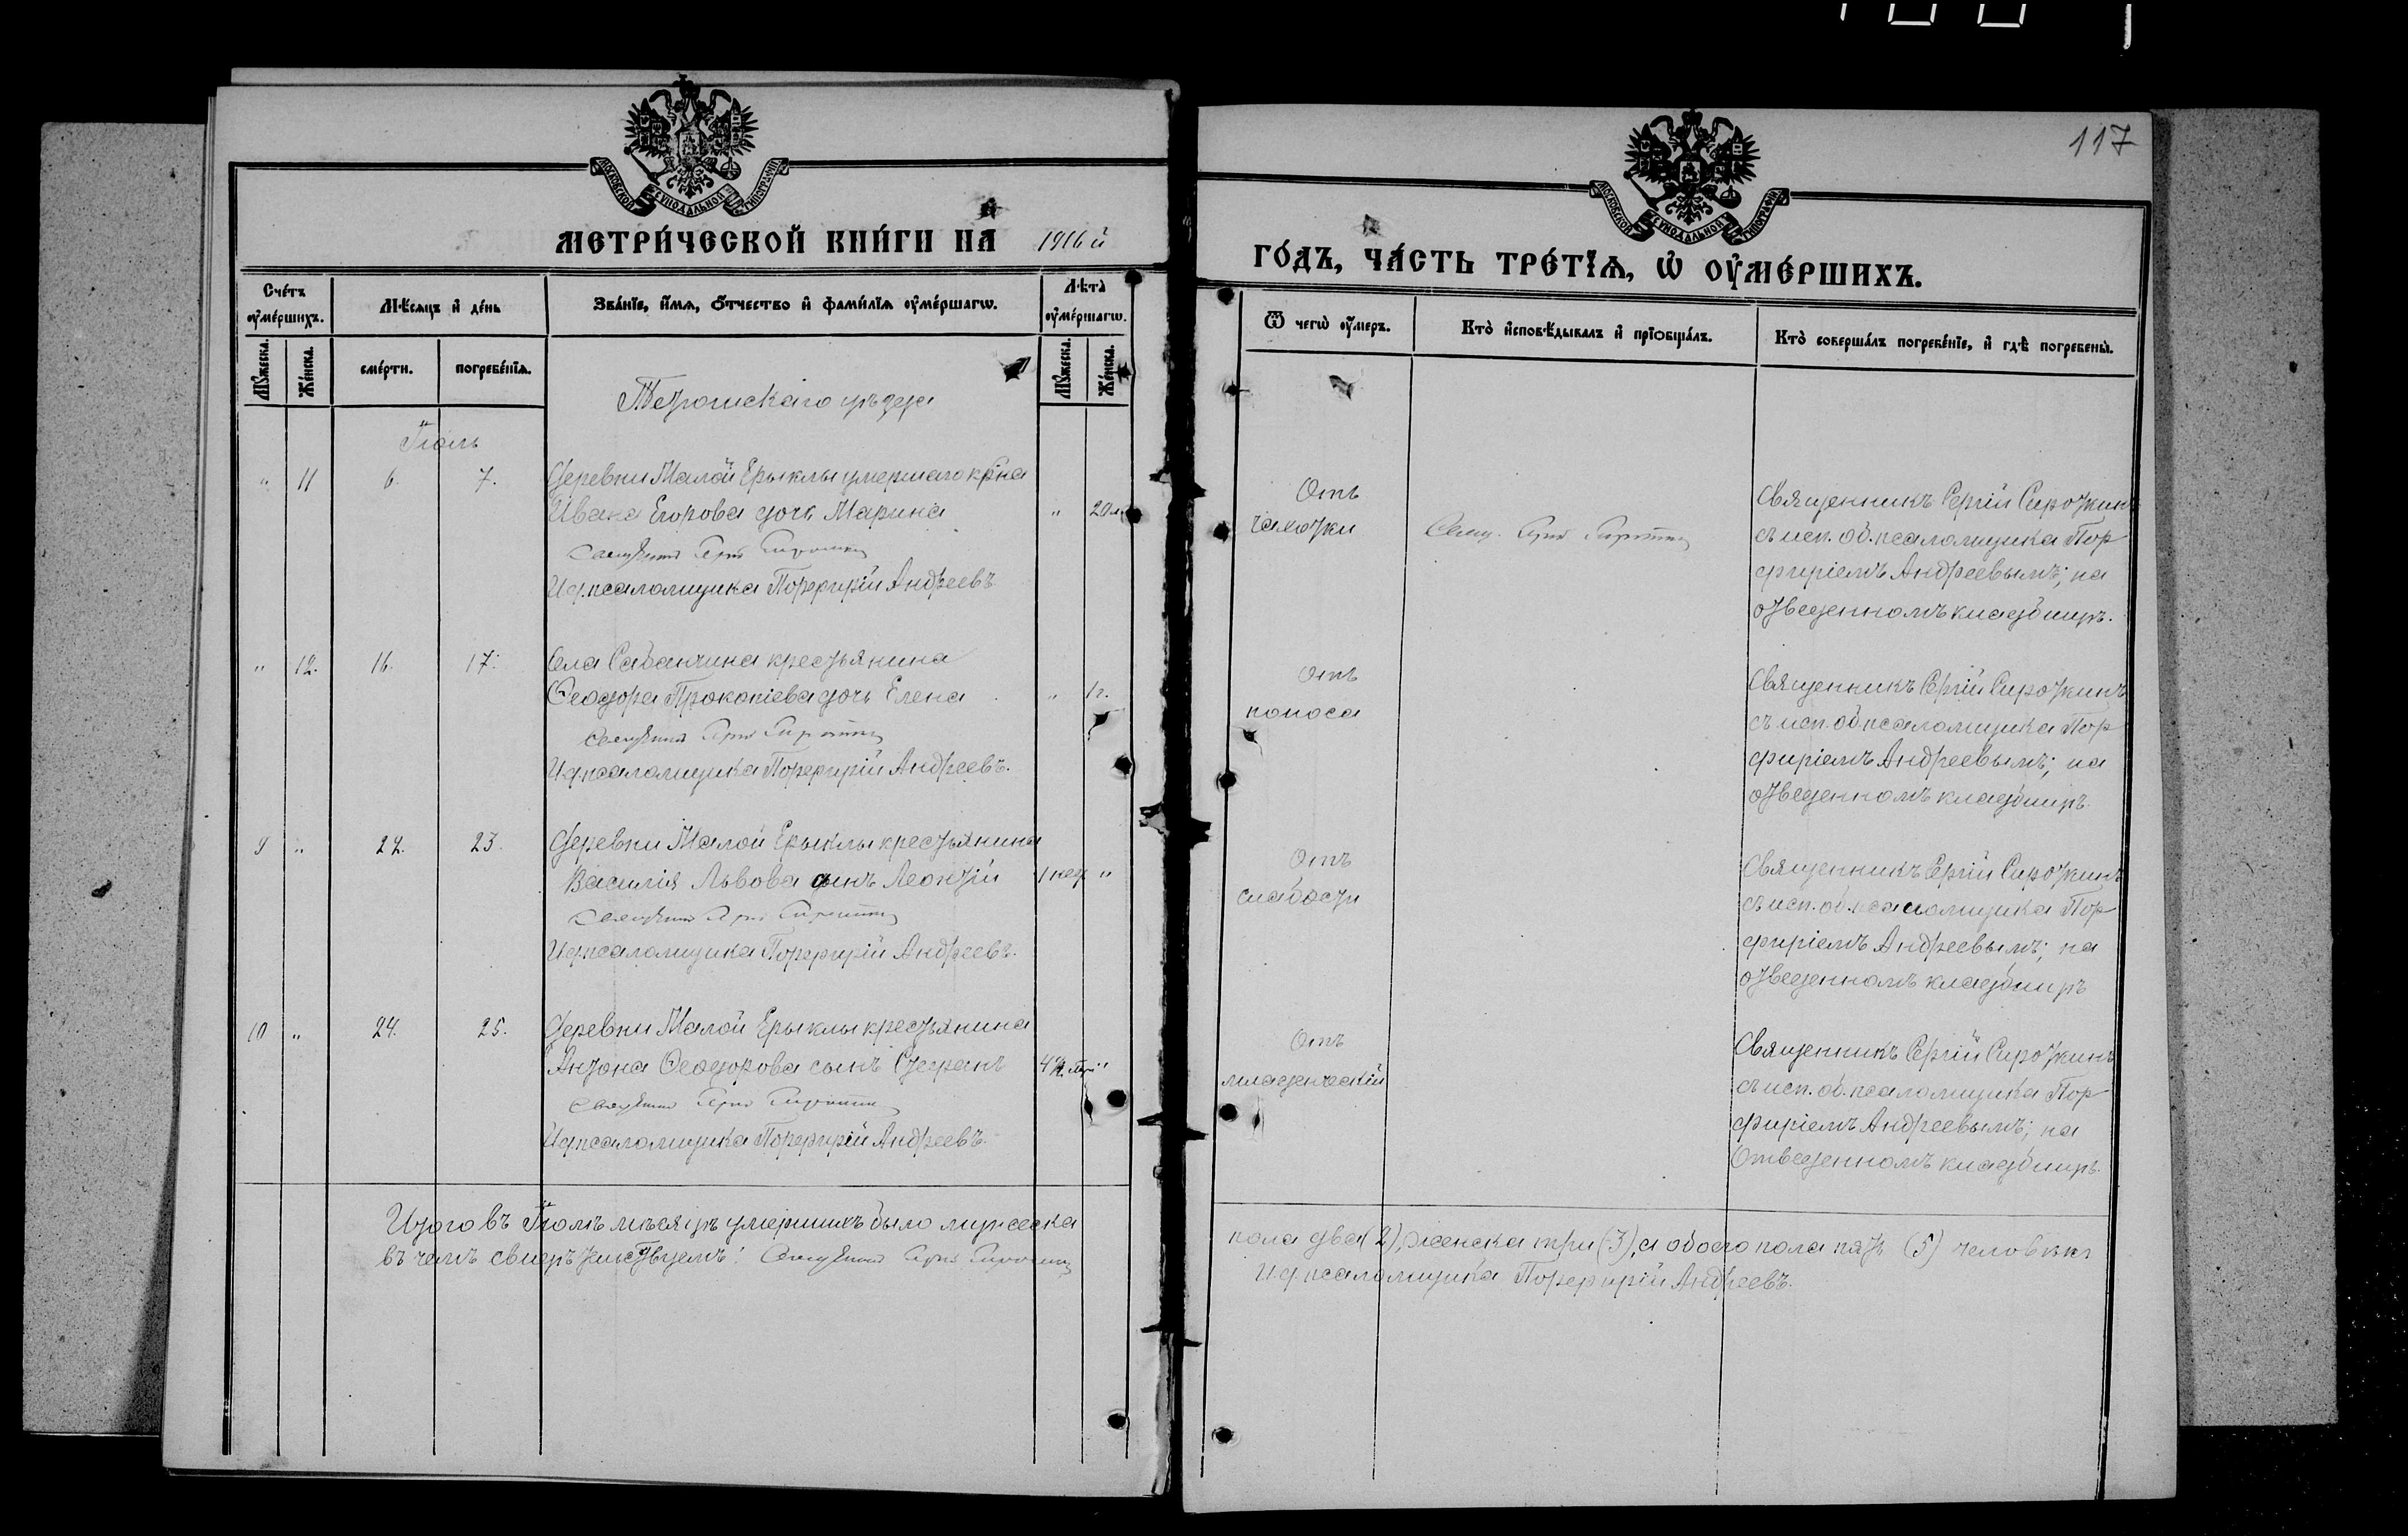 117
МОСКОВСКОЙ СΥНОДАЛЬНОЙ ТИПОГРАФІИ
МОСКОВСКОЙ СΥНОДАЛЬНОЙ ТИПОГРАФІИ
МЕТРИ́ЧЕСКОЙ КНИ́ГИ НА 1916 й
ГО́ДЪ, ЧА́СТЬ ТРЕ́ТІѦ, Ѡ ОУ҆МЕ́РШИХЪ.
Сче́тъ оу҆ме́ршихъ.
Мѣ́сяцъ и҆ де́нь
Зва́нїе, и҆́мя, ѻ҆́тчество и҆ фами́лїя оу҆ме́ршагѡ.
Лѣ́та оу҆ме́ршагѡ.
Ѿ чегѡ̀ оу҆́меръ.
Кто̀ и҆сповѣ́дывалъ и҆ прїѡбща́лъ.
Кто̀ соверша́лъ погребе́нїе, и҆ гдѣ̀ погребены̀.
Мꙋ́жеска.
Же́нска.
сме́рти.
погребе́нїя.
Мꙋ́жеска.
Же́нска.
уѣзда
Іюль
" 11 6. 7. Деревни Малой Ерыклы умершаго кр-на
Ивана Егорова дочь Марина " 20 л.
Священникъ Сергій Сироткинъ
И.д. псаломщика Порфирій Андреевъ
Отъ
чахотки
Свящ. Сергій Сироткинъ
Священникъ Сергій Сироткинъ
съ исп. об. псаломщика Пор
фиріемъ Андреевымъ; на
отведенномъ кладбищѣ.
" 12. 16. 17. Села Сабанчина крестьянина
Ѳеодора Прокопіева дочь Елена " 1 г.
Священникъ Сергій Сироткинъ
И.д. псаломщика Порфирій Андреевъ.
Отъ
поноса
Священникъ Сергій Сироткинъ
съ исп. об. псаломщика Пор
фиріемъ Андреевымъ; на
отведенномъ кладбищѣ.
9 " 22. 23. Деревни Малой Ерыклы крестьянина
Василія Львова сынъ Леонтій 1 нед. "
Священникъ Сергій Сироткинъ
И.д. псаломщика Порфирій Андреевъ.
Отъ
слабости
Священникъ Сергій Сироткинъ
съ исп. об. псаломщика Пор
фиріемъ Андреевымъ; на
отведенномъ кладбищѣ
10 " 24. 25. Деревни Малой Ерыклы крестьянина
Антона Ѳеодорова сынъ Стефанъ "
Священникъ Сергій Сироткинъ
И.д. псаломщика Порфирій Андреевъ.
Отъ
младенческій
Священникъ Сергій Сироткинъ
съ исп. об. псаломщика Пор
фиріемъ Андреевымъ; на
Отведенномъ кладбищѣ.
Итого въ Іюлѣ мѣсяцѣ умершихъ было мужеска
пола два (2), женска три (3), а обоего пола пять (5) человѣкъ
въ чемъ свидѣтельствуемъ: Священникъ Сергій Сироткинъ
И.д. псаломщика Порфирій Андреевъ.